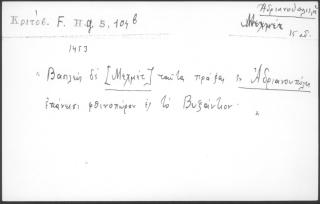 Ἀδριανούπολις
Κριτόβ. Γ. Π 9 5, 104 b
Μεχμὲτ
15 αἰ.
1453
" Βασιλεὺς δὲ [Μεχμὲτ] ταῦτα πράξας ἐν Ἀδριανουπόλει
ἐπάνεισι φθινοπώρου ἐς τὸ Βυζάντιον. "